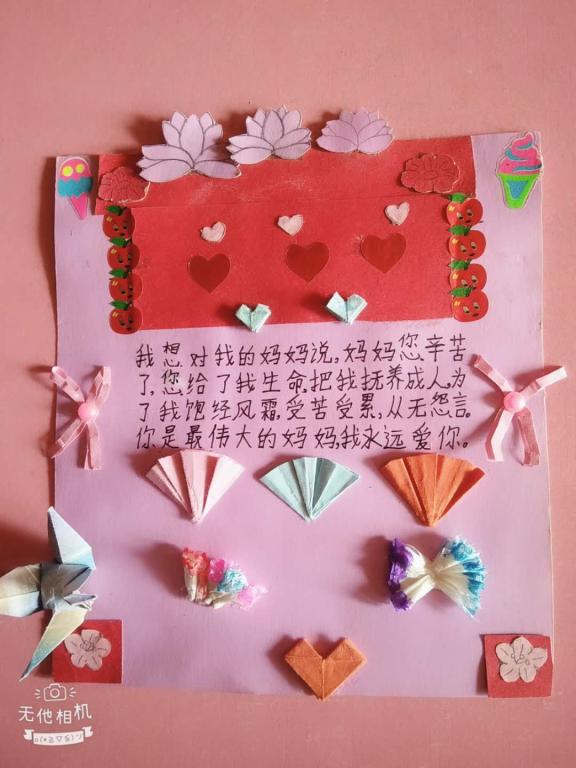 我想对我的妈妈说,妈妈您辛苦
了,您给了我生命,把我抚养成人,为
了我饱经风霜,受苦受累,从无怨言。
你是最伟大的妈妈,我永远爱你。
无他相机